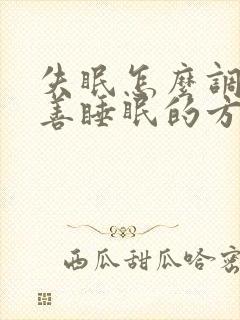 失眠怎麼調
善睡眠的方
西瓜甜瓜哈密